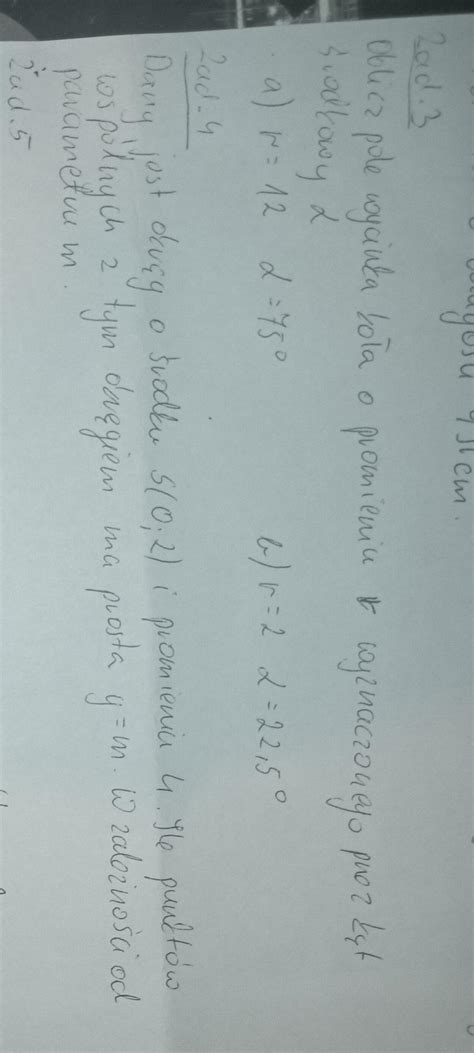 Zad.3
Oblicz pole wycinka koła o promieniu r wyznaczonego przez kąt
środkowy α
a) r=12 α=75° b) r=2 α=22,5°
Zad.4
Dany jest okrąg o środku S(0;2) i promieniu 4. Ile punktów
wspólnych z tym okręgiem ma prosta y=m. W zależności od
parametru m.
Zad.5